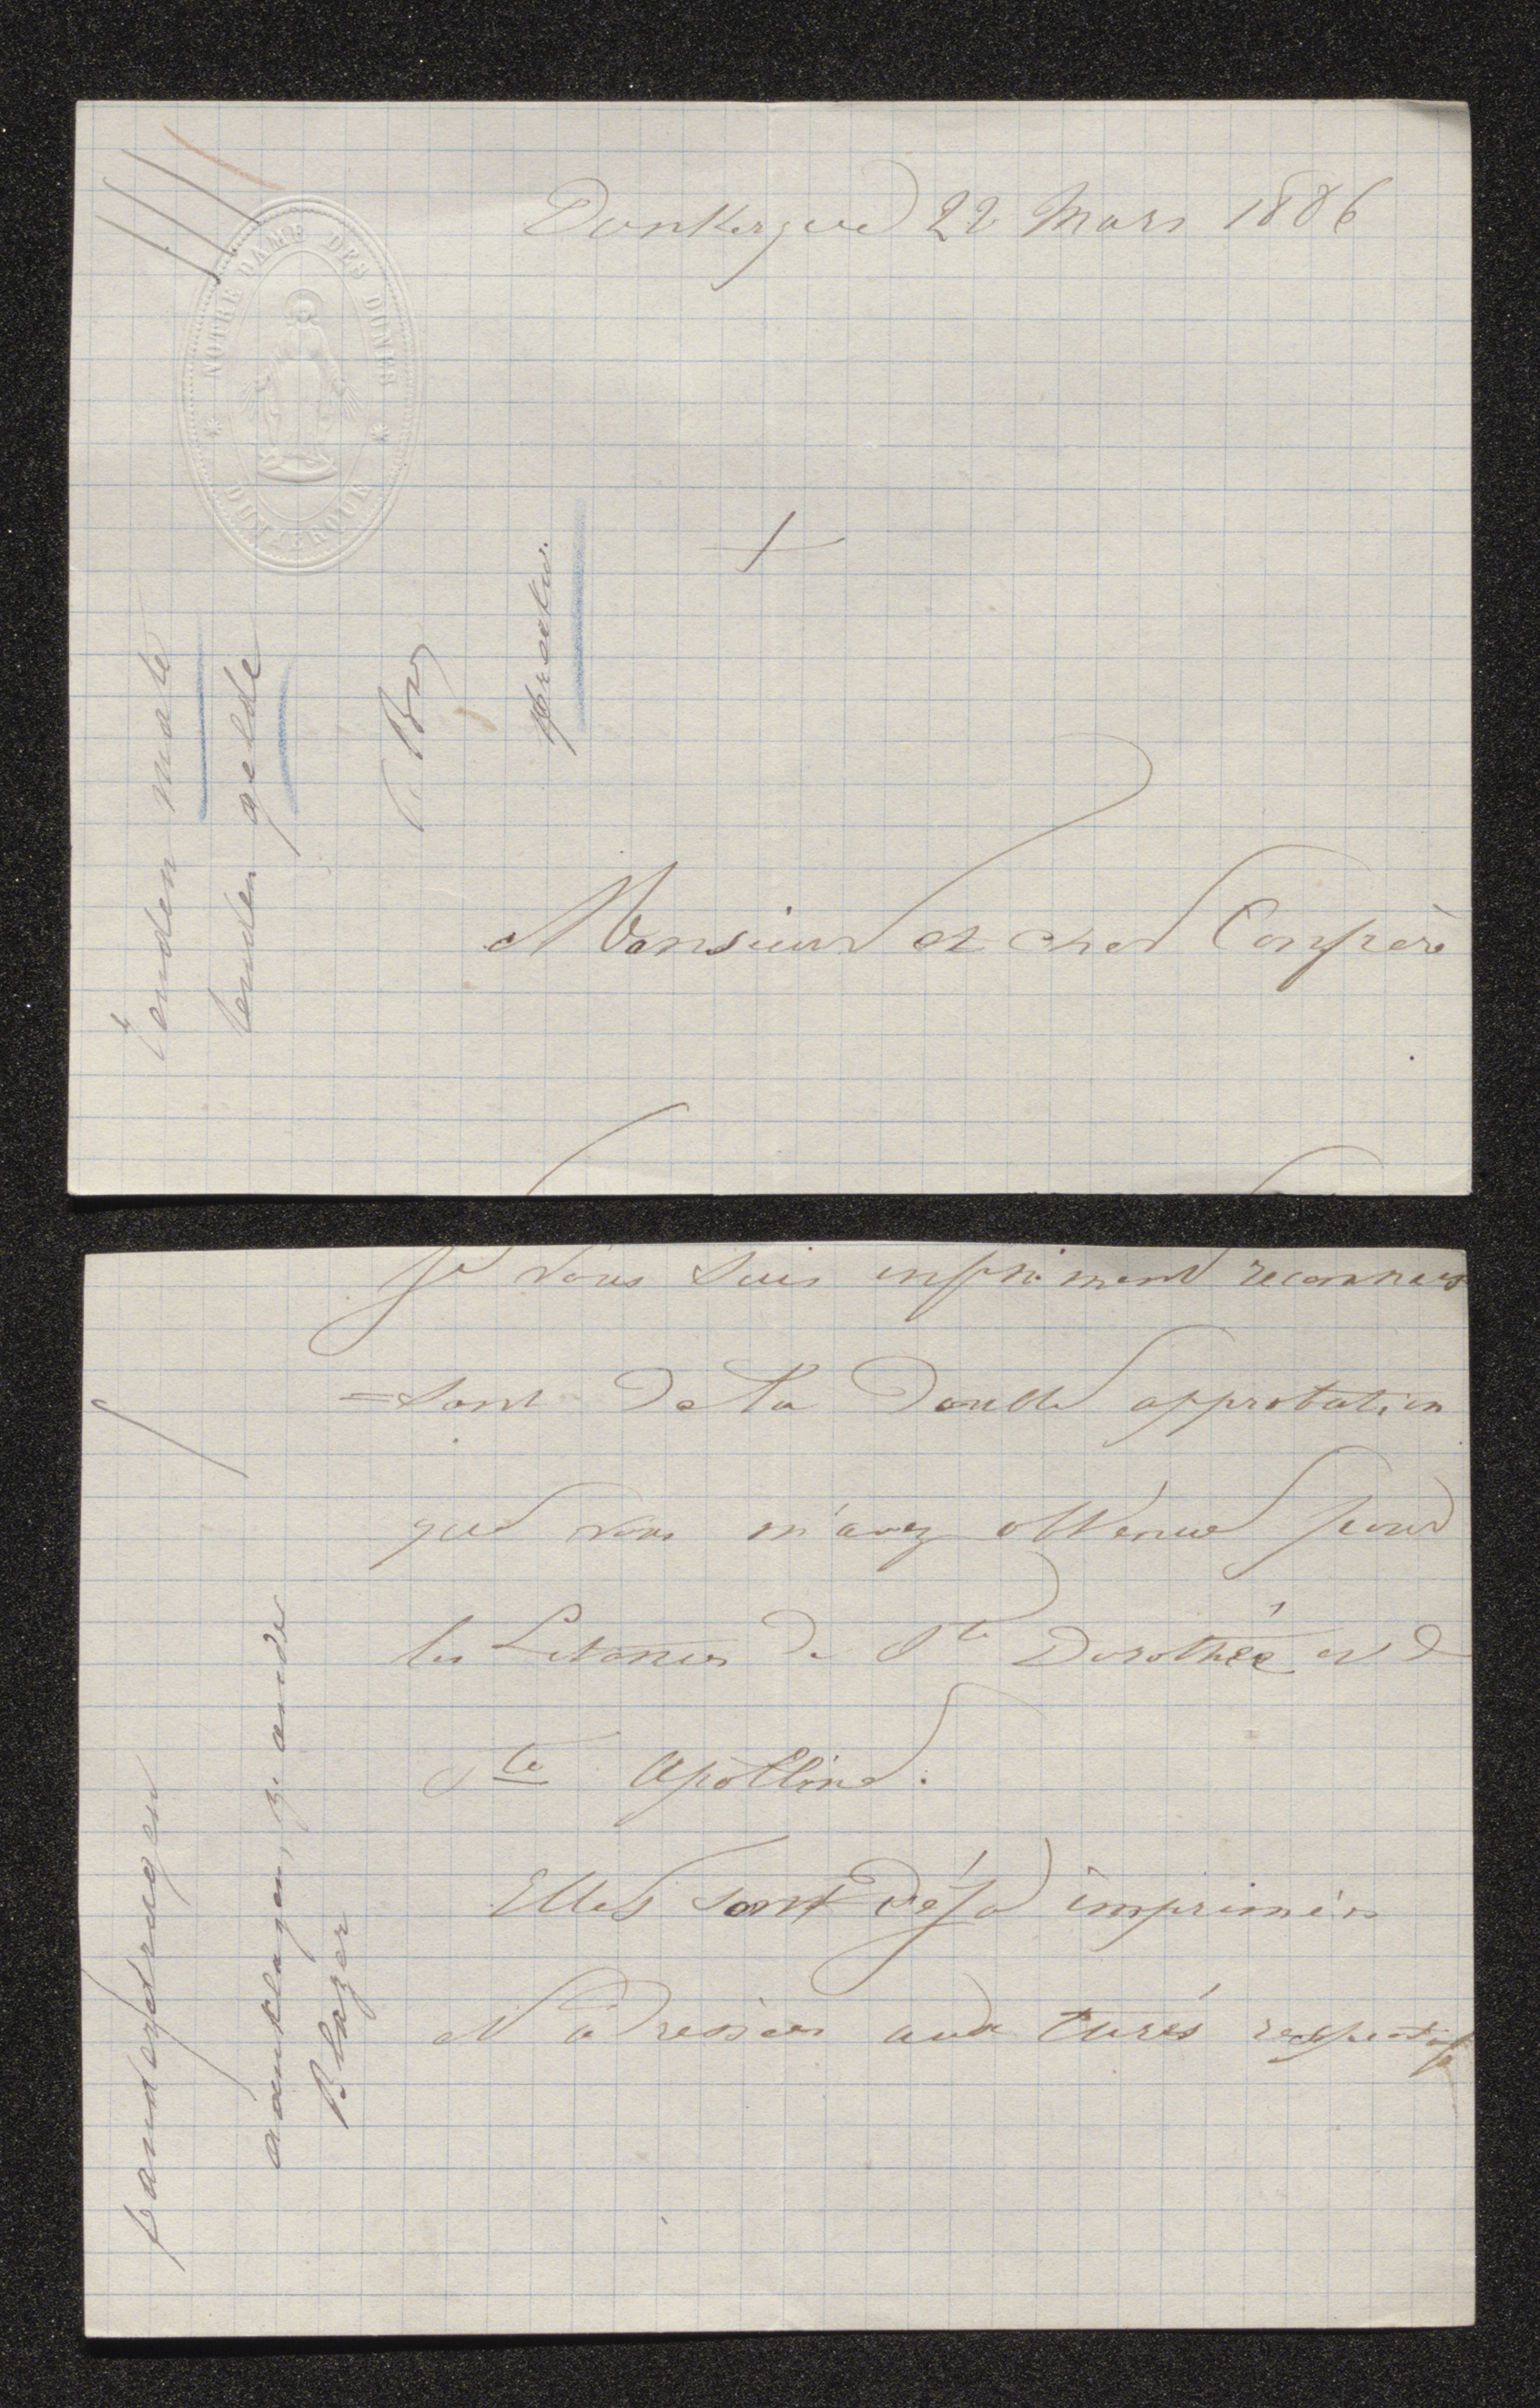 Dunkerque 22 Mars 1886
NOTRE DAME DES DUNES
DUNKERQUE
landen mate
landen gelde
T. Br
Monsieur et cher Confrère
Je vous suis infiniment reconnais
=sant de la double approbation
que vous m'avez obtenue pour
les Litanies de Ste Dorothée et d
Ste Apolline.
Elles sont déjà imprimées
et adressées aux curés respectifs
aamklagen, ze ander
Blazer